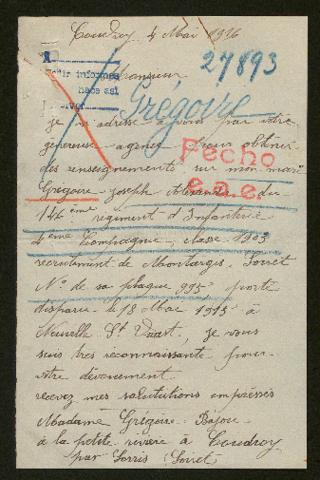 Coudroy 4 Mai 1916
27893
Monsieur
Pedir informes
Grégoire
je m'adresse à vous par votre
généreuse agence pour obtenir
des renseignements sur mon mari
Fecho
Grégoire Joseph du
e.a.e.
146ème régiment d'Infanterie
4ème Compagnie classe 1903
recrutement de Montargis Loiret
No de sa plaque 995 porté
disparu le 18 Mai 1915 à
Neuville St Vaast, je vous
suis très reconnaissante pour
votre dévouement
recevez mes salutations empressés
Madame Grégoire Bajou
à la petite rivière à Coudroy
par Lorris Loiret